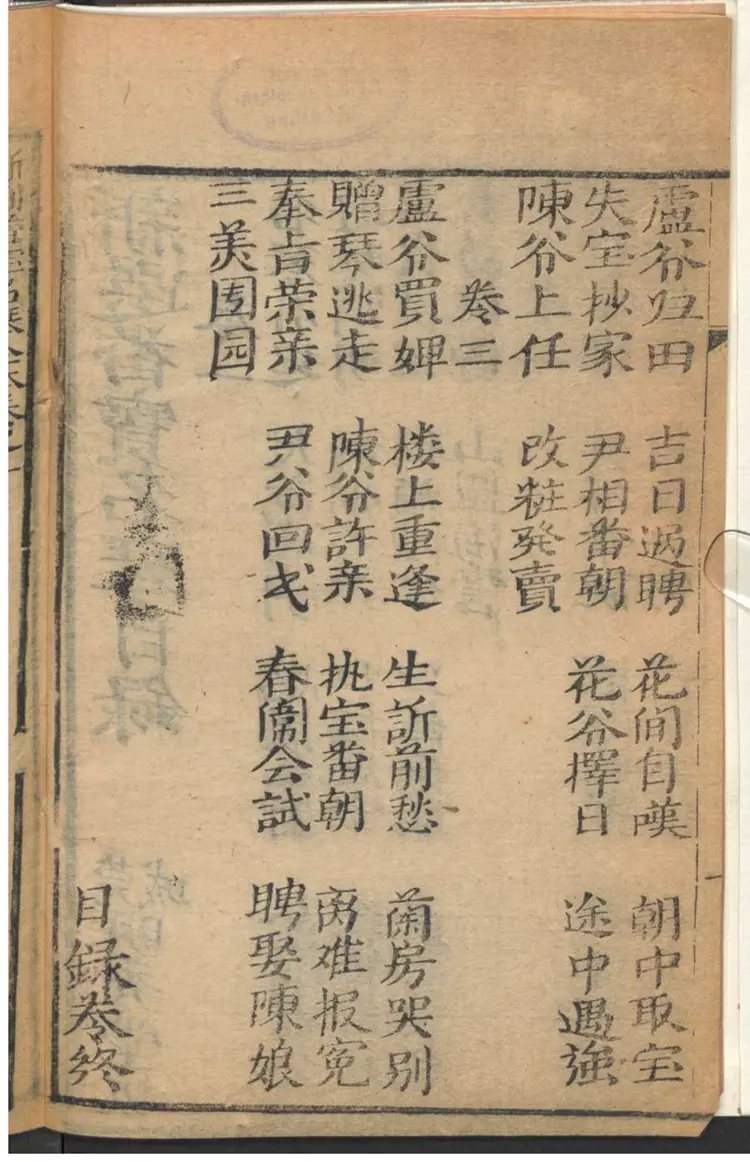 盧爷归田 吉日过聘 花间自嘆 朝中取宝
失宝抄家 尹相番朝 花爷擇日 途中遇強
陳爷上任 改粧発賣
卷三
盧爷買婢 楼上重逢 生訴前愁 蘭房哭别
贈琴逃走 陳爷許亲 执宝番朝 离难报冤
奉旨荣亲 尹爷回朝 春闈会試 聘娶陳娘
三美团园
目録卷终